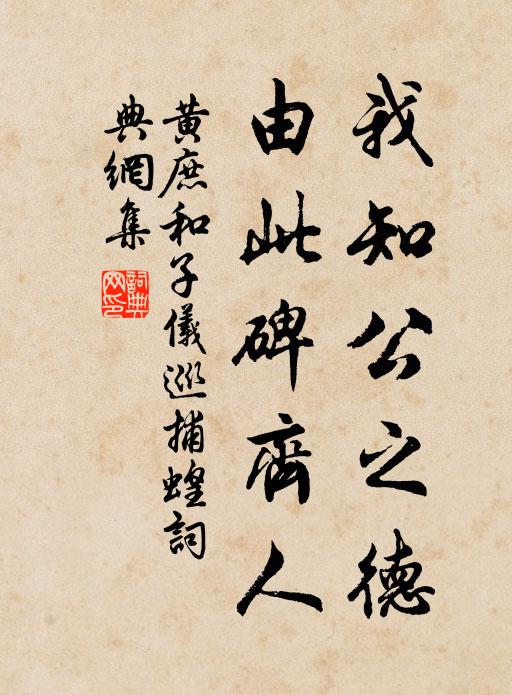 我知公之德
由此碑齊人
黃庶和子儀巡捕蝗詞
典網集
詞典网印